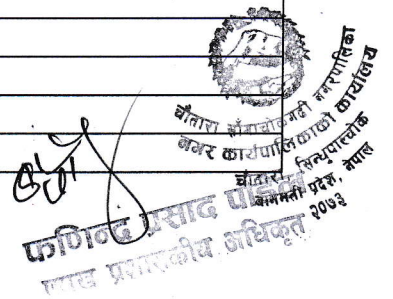 चौतारा साँगाचोकगढी नगरपालिका
नगर कार्यपालिकाको कार्यालय
चौतारा, सिन्धुपाल्चोक
बागमती प्रदेश, नेपाल
२०७३
फणिन्द्र प्रसाद
प्रमुख प्रशासकीय अधिकृत